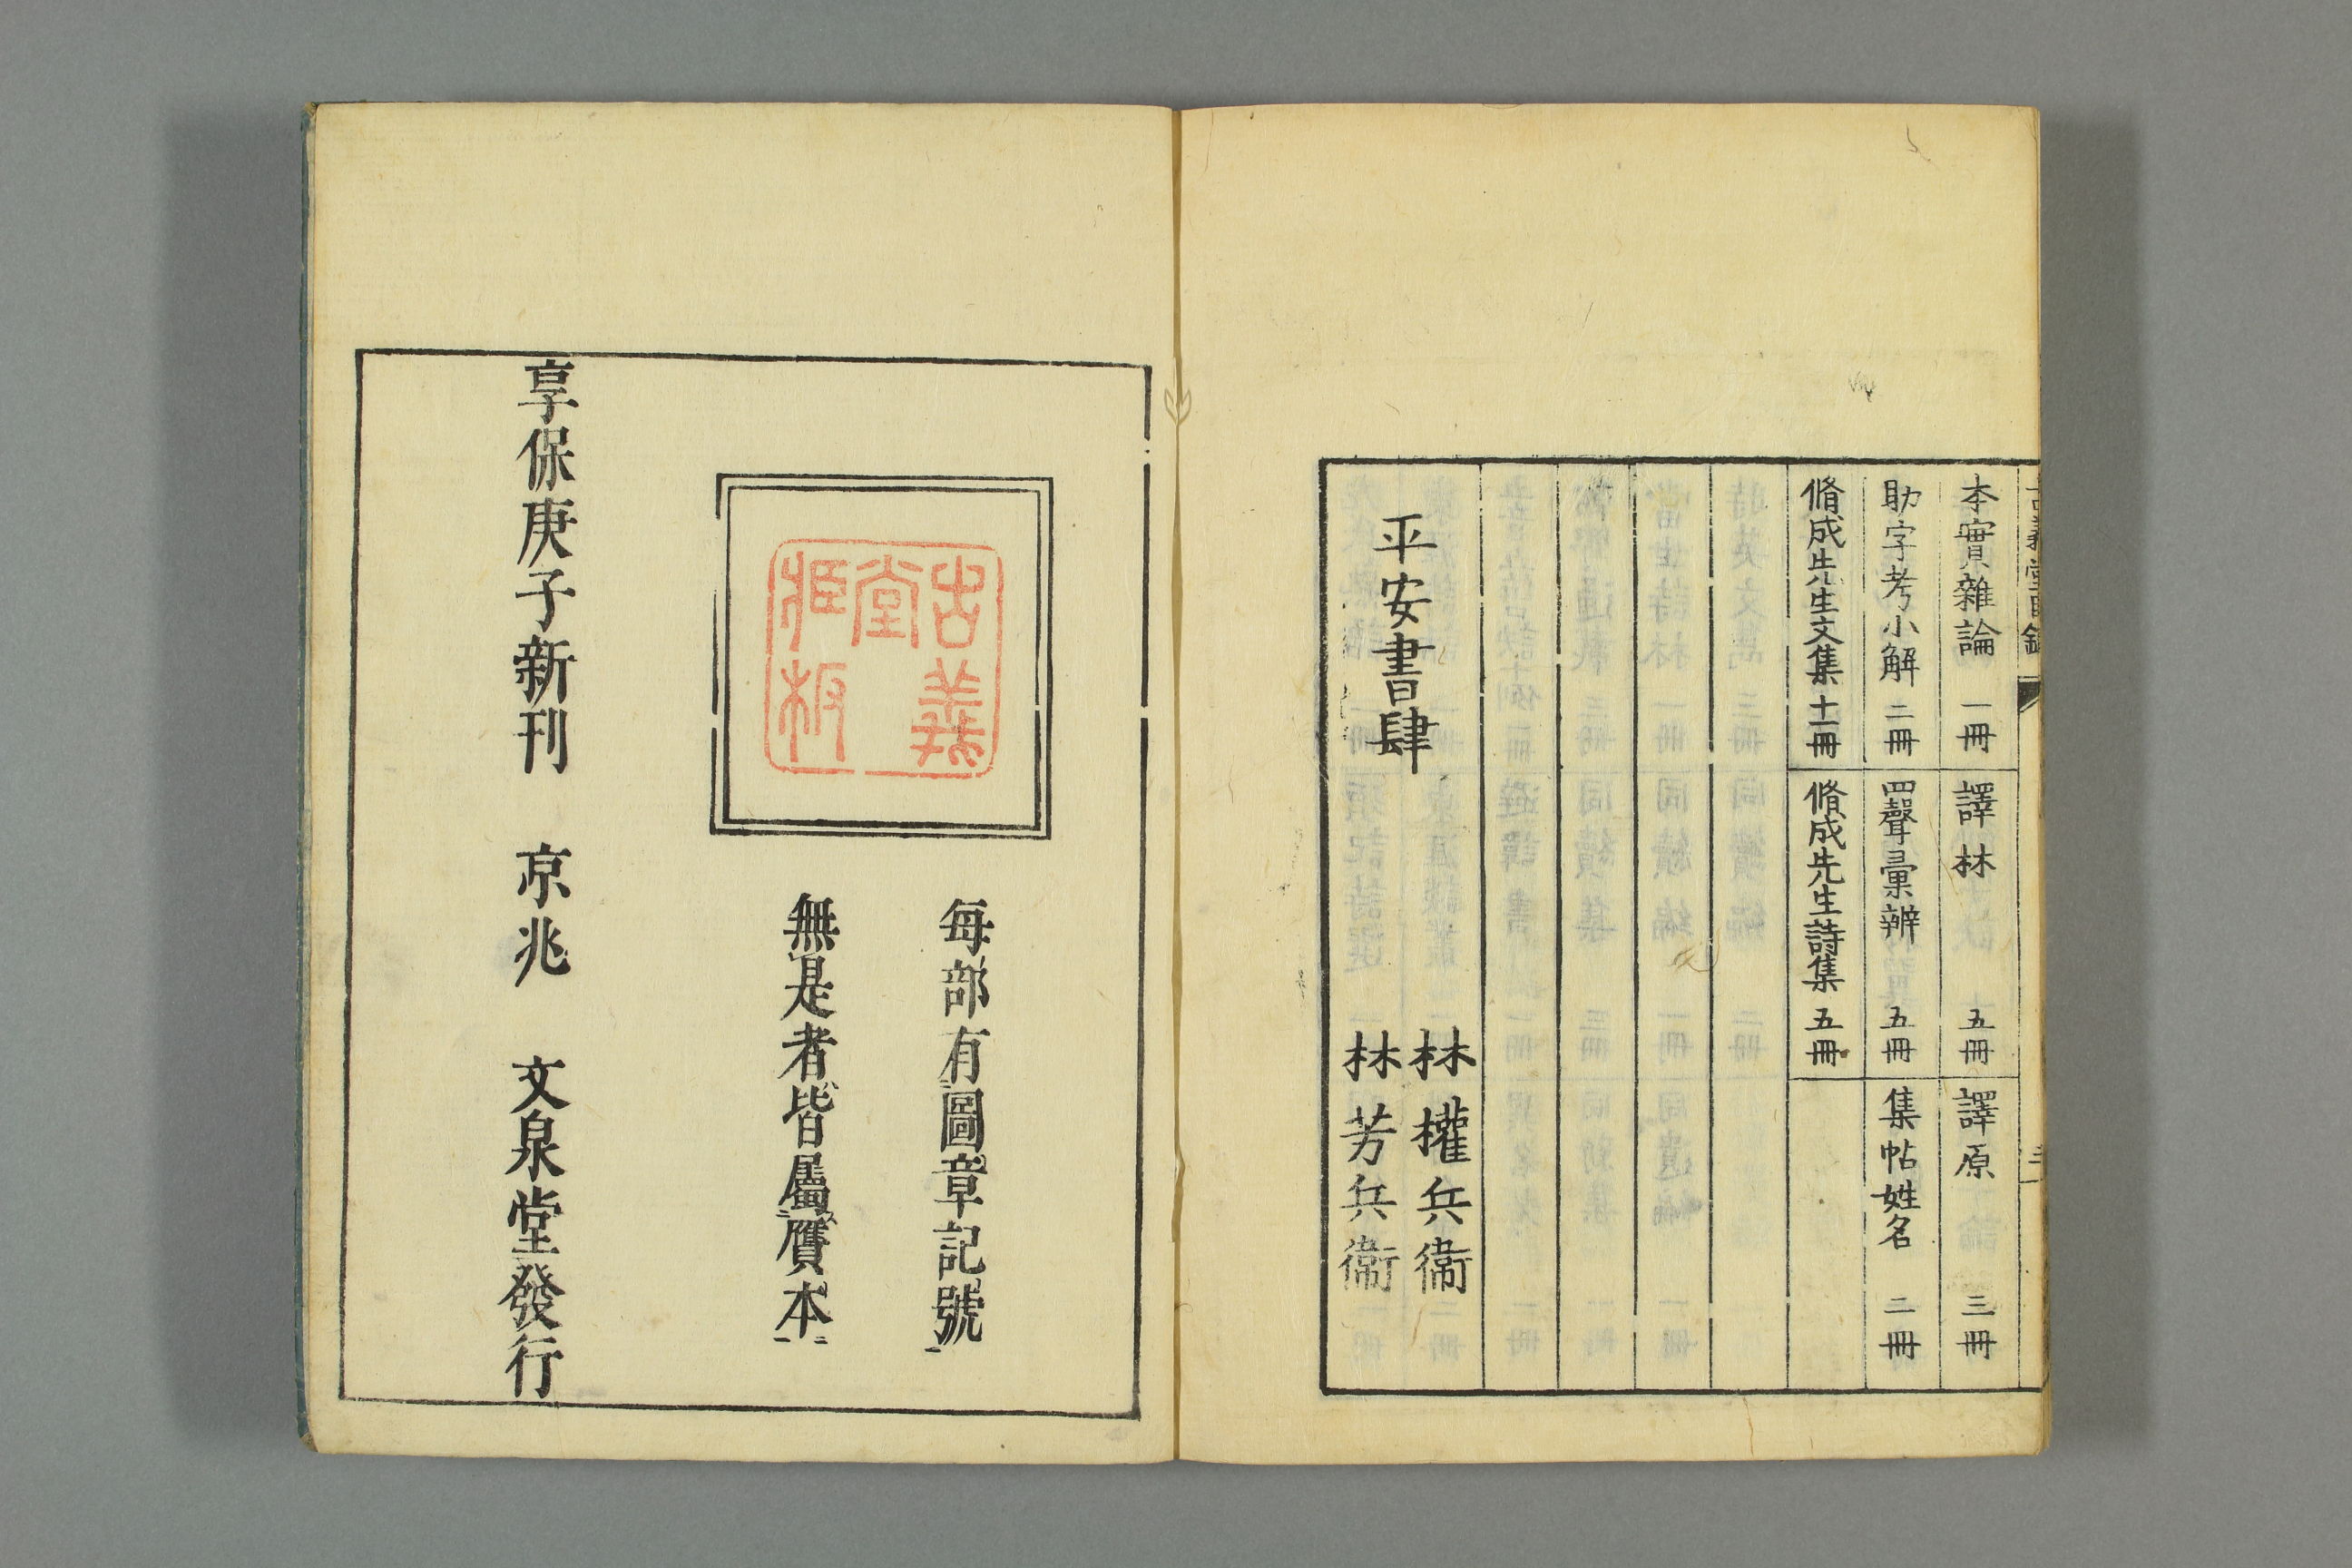 古義堂目録
本實雜論 一冊 譯林 五冊 譯原 三冊
助字考小解 二冊 四聲彙辨 五冊 集帖姓名 二冊
脩成先生文集 十一冊 脩成先生詩集 五冊
平安書肆
林權兵衞
林芳兵衞
古義堂藏板
每部有圖章記號
無是者皆屬贋本
享保庚子新刊 京兆 文泉堂發行